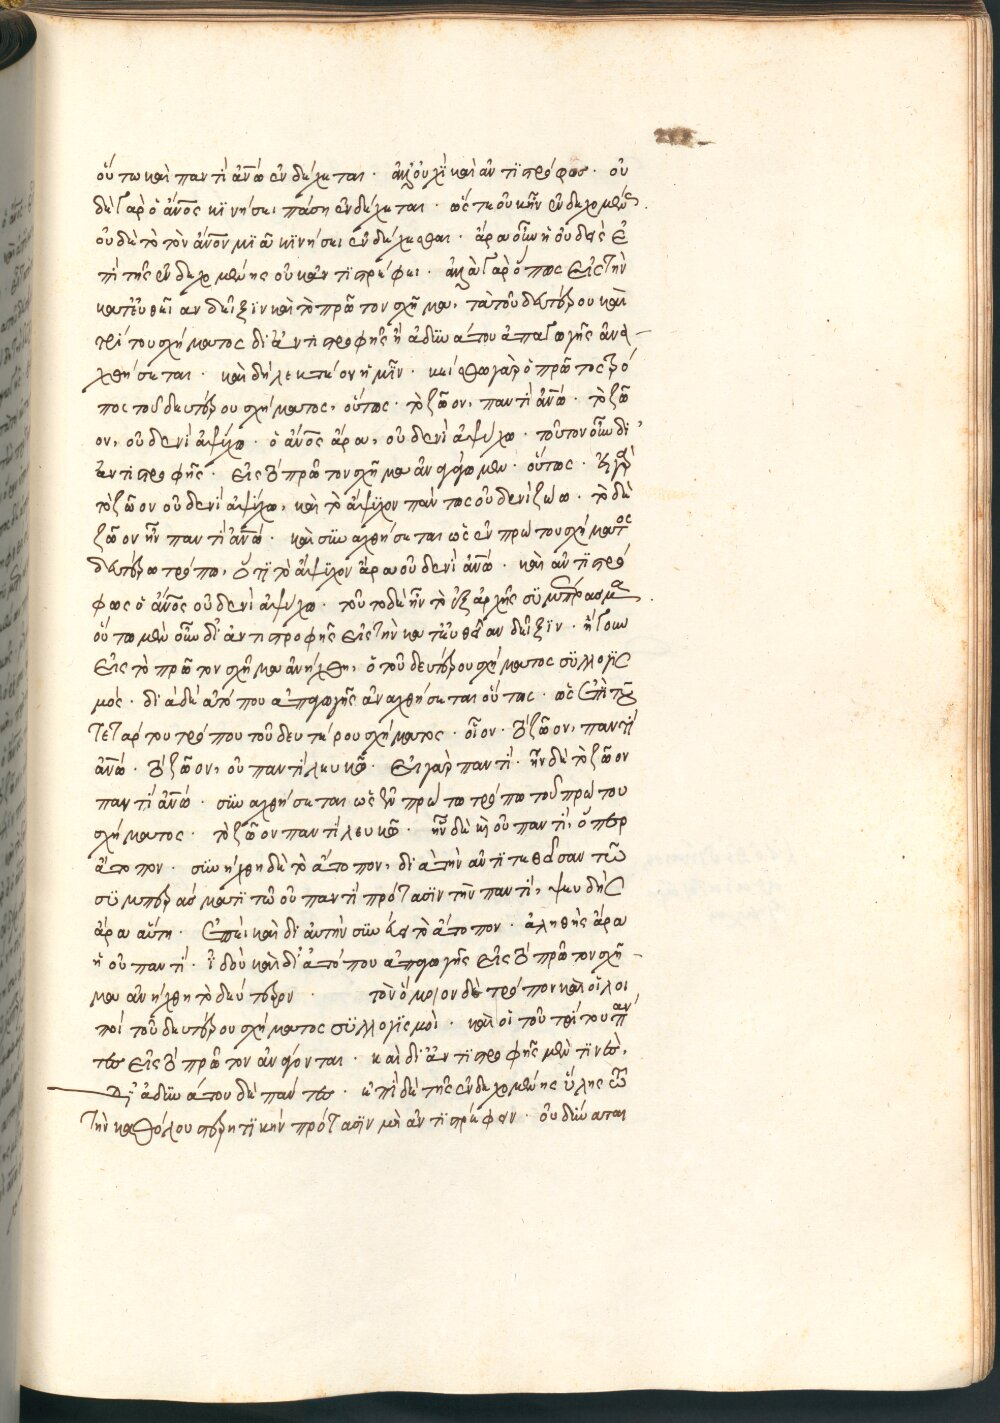 οὕτω καὶ παντὶ ἀνῶ ἐνδέχεται · ἀλλ' οὐχὶ καὶ ἀντιστρόφως · οὐ
δὲ γὰρ ὁ ἄνος κινήσει πάση ἐνδέχεται · ὥστε οὐκ ἦν ἐνδεχομένως .
οὐδὲ τὸ τὸν ἄνον μιᾶ κινήσει ἐνδέχεσθαι · ἄρα οὖν ἡ οὐδεὶς ἐ
πὶ τῆς ἐνδεχομένης οὐκ ἀντιστρέφει · ἀλλὰ γὰρ ὅπως εἰς τὴν
κατευθεῖαν δεῖξιν καὶ τὸ πρῶτον σχῆμα, τὰ τοῦ δευτέρου καὶ
τρίτου σχήματος δι' ἀντιστροφῆς ἢ ἀδυνάτου ἀπαγωγῆς ἀνα
χθήσεται · καὶ δὴ λεκτέον ἡμῖν · κείσθω γὰρ ὁ πρῶτος τρό
πος τοῦ δευτέρου σχήματος, οὕτως · τὸ ζῶον, παντὶ ἀνῶ · τὸ ζῶ
ον, οὐδενὶ ἀψύχω · ὁ ἄνος ἄρα, οὐδενὶ ἀψύχω · τοῦτον οὖν δι'
ἀντιστροφῆς · εἰς τὸ πρῶτον σχῆμα ἀναγάγωμεν · οὕτως · εἰ γὰρ
τὸ ζῶον οὐδενὶ ἀψύχω, καὶ τὸ ἄψυχον πάντως οὐδενὶ ζώω · τὸ δὲ
ζῶον ἦν παντὶ ἀνῶ · καὶ συναχθήσεται ὡς ἐν πρώτου σχήματος
δευτέρω τρόπω, ὅτι τὸ ἄψυχον ἄρα οὐδενὶ ἀνῶ · καὶ ἀντιστρό
φως ὁ ἄνος οὐδενὶ ἀψύχω · τοῦτο δὲ ἦν τὸ ἐξ ἀρχῆς συμπέρασμα .
οὕτω μὲν οὖν δι' ἀντιστροφῆς εἰς τὴν κατευθεῖαν δεῖξιν · ἤγουν
εἰς τὸ πρῶτον σχῆμα ἀνήχθη, ὁ τοῦ δευτέρου σχήματος συλλογισ
μός · διὰ δὲ ἀτόπου ἀπαγωγῆς ἀναχθήσεται οὕτως · ὡς ἐπὶ τοῦ
τετάρτου τρόπου τοῦ δευτέρου σχήματος · οἷον · τὸ ζῶον, παντὶ
ἀνῶ · τὸ ζῶον, οὐ παντὶ λευκῶ · εἰ γὰρ παντί · ἦν δὲ τὸ ζῶον
παντὶ ἀνῶ · συναχθήσεται ὡς ἐν πρώτω τρόπω τοῦ πρώτου
σχήματος · τὸ ζῶον παντὶ λευκῶ · ἦν δὲ καὶ οὐ παντί, ὅπερ
ἄτοπον · συνήχθη δὲ τὸ ἄτοπον, διὰ τὴν ἀντιτεθεῖσαν τῶ
συμπεράσματι τῶ οὐ παντὶ πρότασιν τὴν παντί, ψευδὴς
ἄρα αὕτη · ἐπεὶ καὶ δι' αὐτὴν συνέβη τὸ ἄτοπον · ἀληθὴς ἄρα
ἡ οὐ παντί · ἰδοὺ καὶ δι' ἀτόπου ἀπαγωγῆς εἰς τὸ πρῶτον σχῆ
μα ἀνήχθη τὸ δεύτερον · τὸν ὅμοιον δὲ τρόπον καὶ οἱ λοι
ποὶ τοῦ δευτέρου σχήματος συλλογισμοὶ · καὶ οἱ τοῦ τρίτου πάν
τες εἰς τὸ πρῶτον ἀνάγονται · καὶ δι' ἀντιστροφῆς μὲν τινὲς,
δι' ἀδυνάτου δὲ πάντες · ἐπὶ δὲ τῆς ἐνδεχομένης ὕλης ὡς
τὴν καθόλου στερητικὴν πρότασιν μὴ ἀντιστρέφειν · οὐ δύναται